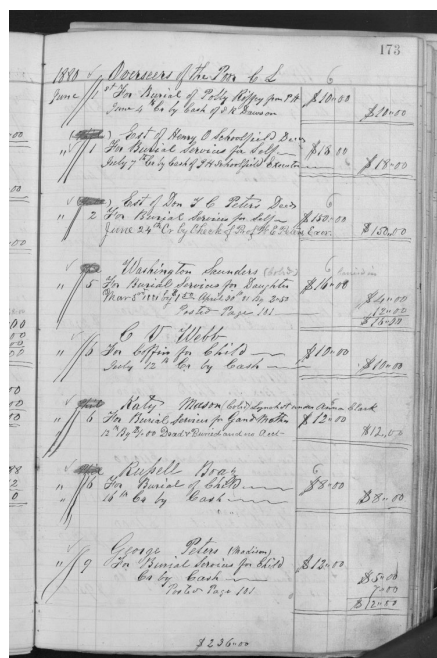 173
1880 Overseers of the Poor C L 6
June 1st For Burial of Polly from P H $10.00
June 4th Cr by Cash of S K Dawson $10.00
Est of Henry O Schoolfield Decd
" 1 For Burial Services for Self $18.00
July 7th Cr by Cash of J H Schoolfield Executor $18.00
Est of Don T C Peters Decd 6
" 2 For Burial Services for Self $150.00
June 24th Cr by Check of Prof W E Peters Exor. $150.00
Washington Saunders (Cold) 6
" 5 For Burial Services for Daughter $16.00
$4.00
Posted Page 181 12.00
$16.00
C V Webb
" 5 For Coffin for Child $10.00
July 12th Cr by Cash $10.00
Katy Mason (Cold) Lynch St under Anna Clark
" 6 For Burial Services for Grand Mother $12.00
Dead & Buried and no Acct $12.00
Russell Bray 6
" 6 For Burial of Child $8.00
" 16th Cr by Cash $8.00
George Peters
" 9 For Burial Services for Child $12.00
Cr by Cash $5.00
Posted Page 181 7.00
$12.00
$236.00